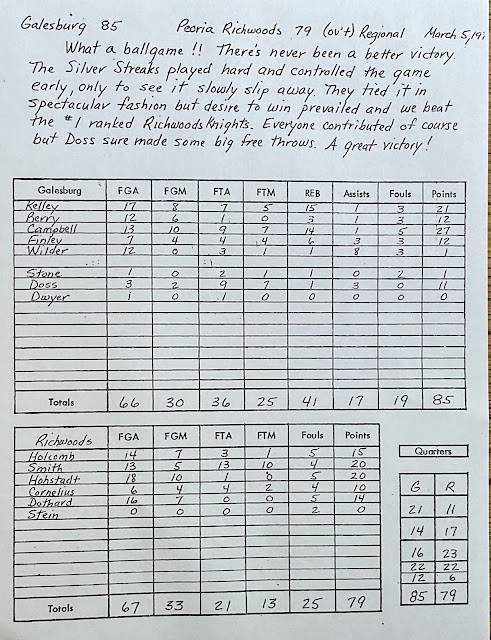 Galesburg 85 Peoria Richwoods 79 (ov't) Regional March 5, 19
What a ballgame!! There's never been a better victory.
The Silver Streaks played hard and controlled the game
early, only to see it slowly slip away. They tied it in
spectacular fashion but desire to win prevailed and we beat
the #1 ranked Richwoods Knights. Everyone contributed of course
but Doss sure made some big free throws. A great victory!
Galesburg FGA FGM FTA FTM REB Assists Fouls Points
Kelley 17 8 7 5 15 1 3 21
Berry 12 6 1 0 3 1 3 12
Campbell 13 10 9 7 14 1 5 27
Finley 7 4 4 4 6 3 3 12
Wilder 12 0 3 1 1 8 3 1
Stone 1 0 2 1 1 0 2 1
Doss 3 2 9 7 1 3 0 11
Dwyer 1 0 1 0 0 0 0 0
Totals 66 30 36 25 41 17 19 85
Richwoods FGA FGM FTA FTM Fouls Points
Holcomb 14 7 3 1 5 15
Smith 13 5 13 10 4 20
Hohstadt 18 10 1 0 5 20
Cornelius 6 4 4 2 4 10
Dothard 16 7 0 0 5 14
Stein 0 0 0 0 2 0
Totals 67 33 21 13 25 79
Quarters
G R
21 11
14 17
16 23
22 22
12 6
85 79